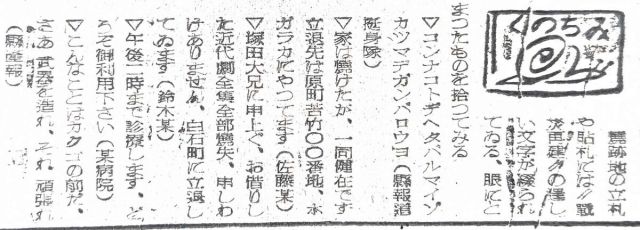 みちのく
焼跡地の立札
や貼札には〃戦
災更建〃の逞し
い文字が綴られ
てゐる、眼にと
まつたものを拾つてみる
▽コンナコトデヘタバルマイゾ
カツマデガンバロウヨ（縣報道
挺身隊）
▽家は焼けたが、一同健在です
立退先は原町苦竹〇〇番地、木
ガラカにやつてます（佐藤某）
▽塚田大兄に申上ぐ、お借りし
た近代劇全集全部焼失、申しわ
けありません、白石町に立退し
てゐます（鈴木某）
▽午後二時まで診療します、ど
うぞ御利用下さい（某病院）
▽こんなことはカクゴの前だ、
さあ武器を造れ、それ頑張れ
（縣産報）